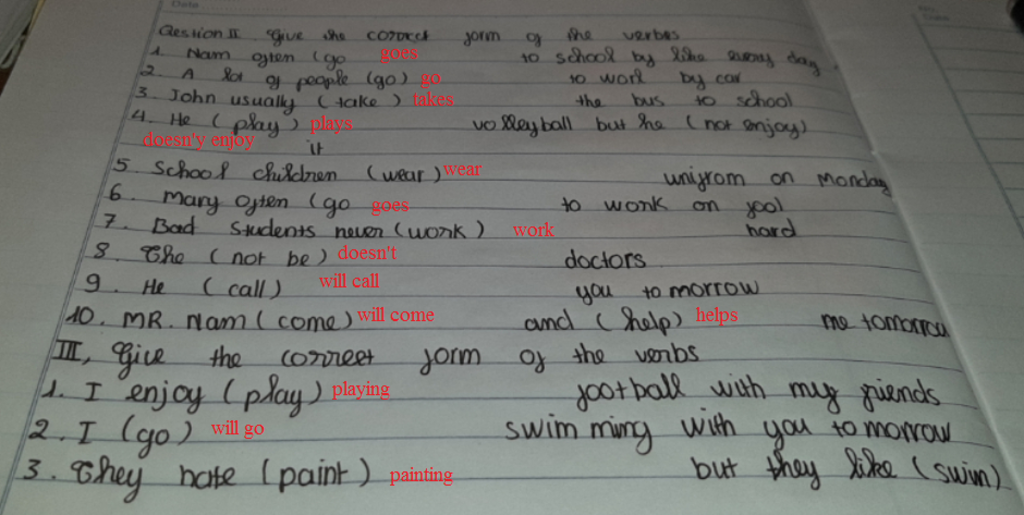 Date
Question II Give the correct form of the verbs
1. Nam often (go goes to school by bike every day
2. A lot of people (go) go to work by car
3. John usually (take) takes the bus to school
4. He (play) plays volleyball but he (not enjoy)
doesn'y enjoy it
5 School children (wear) wear unifrom on Monday
6. Mary often (go goes to work on fool
7. Bad students never (work) work hard
8. The (not be) doesn't doctors
9. He (call) will call you tomorrow
10. MR. Nam (come) will come and (help) helps me tomorrow
III, Give the correct form of the verbs
1. I enjoy (play) playing football with my friends
2. I (go) will go swimming with you tomorrow
3. They hate (paint) painting but they like (swim)